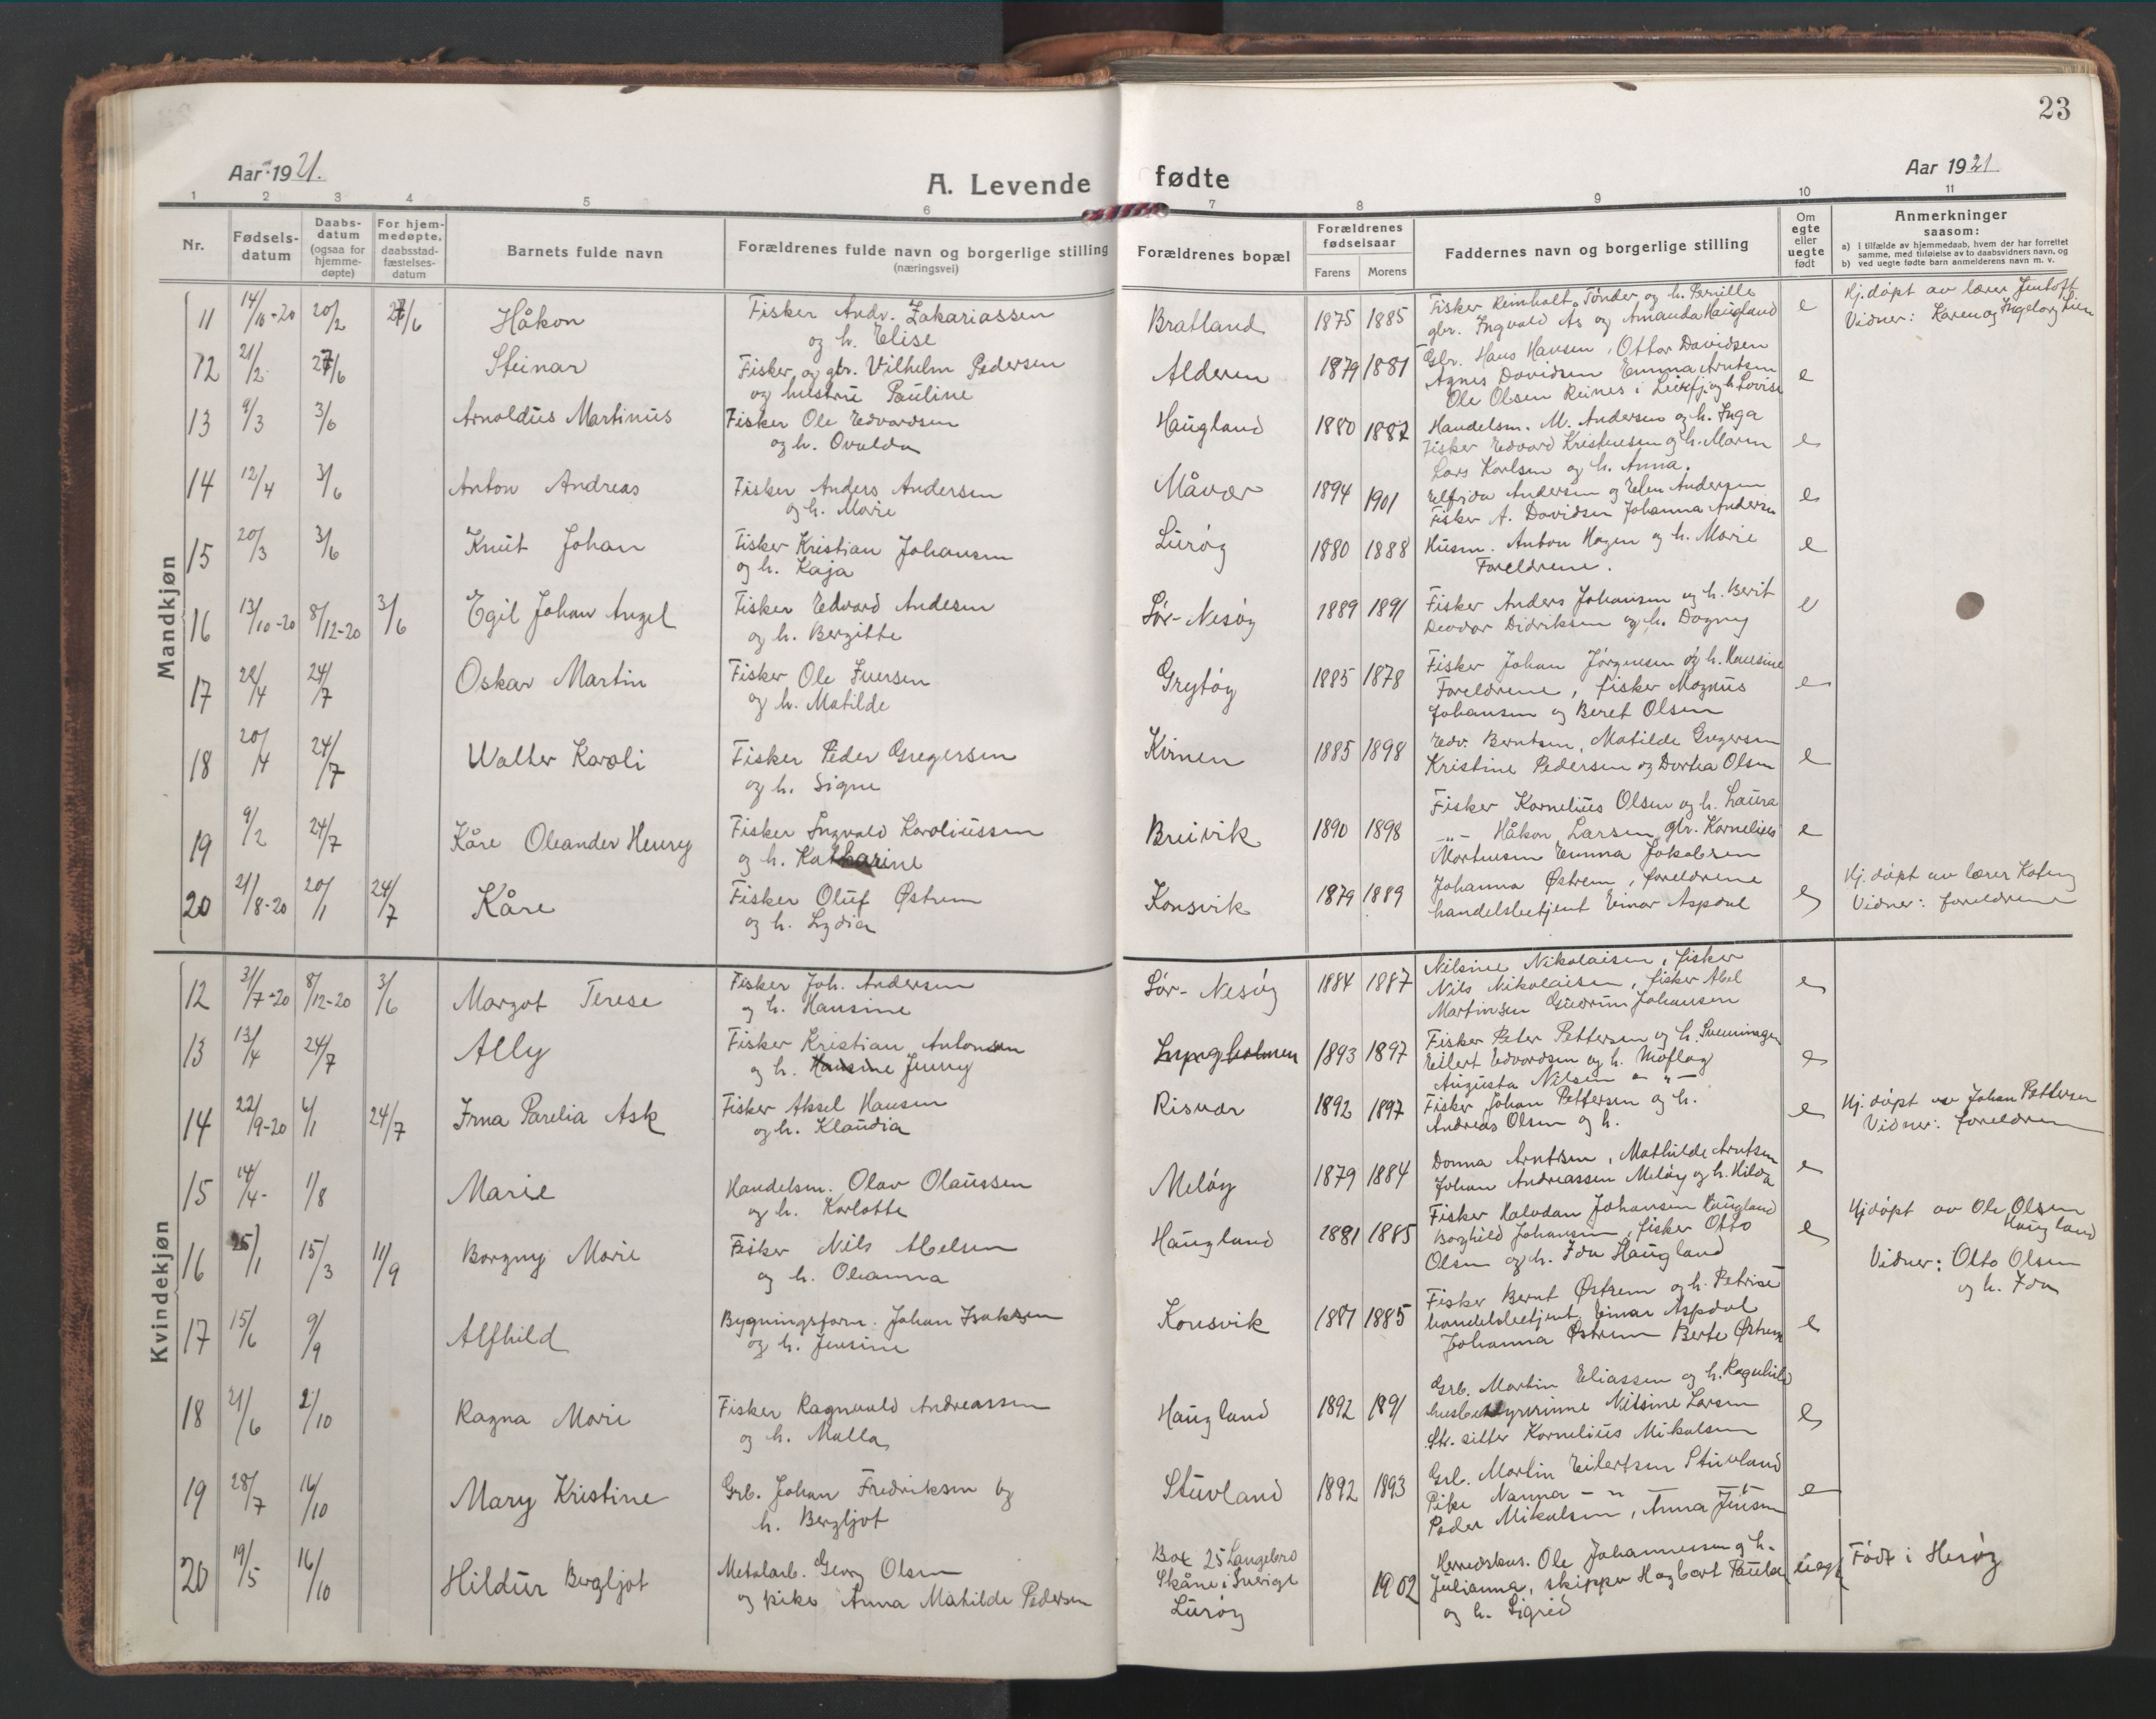 23
Aar 1921.
A. Levende fødte
Aar 1921
1 2 3 4 5 6 7 8 9 10 11
Nr.
Fødsels-
datum
Daabs-
datum
(ogsaa for
hjemme-
døpte)
For hjem-
medøpte,
daabsstad-
fæstelses-
datum
Barnets fulde navn
Forældrenes fulde navn og borgerlige stilling
(næringsvei)
Forældrenes bopæl
Forældrenes
fødselsaar
Farens Morens
Faddernes navn og borgerlige stilling
Om
egte
eller
uegte
født
Anmerkninger
saasom:
a) i tilfælde av hjemmedaab, hvem der har forrettet
samme, med tilføielse av to daabsvidners navn, og
b) ved uegte fødte barn anmelderens navn m. v.
Mandkjøn
11 14/10-20 20/2 /6 Håkon Fisker Andr. Zakariassen Bratland 1875 1885 Fisker Reinholt Tønder og h. Pernille e Hj.døpt av lærer Jentoft
og h. Elise gbr. Ingvald As og Amanda Haugland Vidner: Karen og Ingeborg Lien
12 21/2 27/6 Steinar Fisker og gbr. Vilhelm Pedersen Alderen 1879 1881 Gbr. Hans Hansen, Ottar Davidsen e
og hustru Pauline Agnes Davidsen Emma Arntsen
Ole Olsen Reines i Leirfj. og h. Lovise
13 9/3 3/6 Arnoldus Martinus Fisker Ole Edvardsen Haugland 1880 1887 Handelsm. M. Andersen og h. Inga e
og h. Ovalda Fisker Edvard Kristensen og h. Maren
Lars Karlsen og h. Anna.
14 12/4 3/6 Anton Andreas Fisker Anders Andersen Måvær 1894 1901 Elfrida Andersen og Elen Andersen e
og h. Marie Fisker A. Davidsen Johanna Andersen
15 20/3 3/6 Knut Johan Fisker Kristian Johansen Lurøy 1880 1888 Husm. Anton Hagen og h. Marie e
og h. Kaja Foreldrene.
16 13/10-20 8/12-20 3/6 Egil Johan Angel Fisker Edvard Andersen Sør-Nesøy 1889 1891 Fisker Anders Johansen og h. Berit e
og h. Bergitte Didriksen og h. Dagny
17 22/4 24/7 Oskar Martin Fisker Ole Iversen Grytøy 1885 1878 Fisker Johan Jørgensen og h. Hansine e
og h. Matilde Foreldrene, fisker Magnus
Johansen og Beret Olsen
18 20/4 24/7 Walter Karoli Fisker Peder Gregersen Kvinen 1885 1898 Edv. Berntsen, Matilde Gregersen e
og h. Signe Kristine Pedersen og Dortea Olsen
19 9/2 24/7 Kåre Oleander Henry Fisker Ingvald Karoliussen Breivik 1890 1898 Fisker Kornelius Olsen og h. Laura e
og h. Katharine -"- Håkon Larsen, gbr. Kornelius
Mortensen Emma Jakobsen
20 21/8-20 20/1 24/7 Kåre Fisker Oluf Østrem Konsvik 1879 1889 Johanna Østrem, foreldrene e Hj. døpt av lærer
og h. Lydia handelsbetjent Einar Aspdal Vidner: foreldrene
Kvindekjøn
12 31/7-20 8/12-20 3/6 Margot Terese Fisker Joh. Andersen Sør-Nesøy 1884 1887 Nilsine Nikolaisen, fisker e
og h. Hansine Nils Nikolaisen, fisker Abel
Martinsen Gudrun Johansen
13 13/4 24/7 Ally Fisker Kristian Antonsen Lyngholmen 1893 1897 Fisker Peter Pettersen og h. e
og h. Hansine Jenny Eilert Edvardsen og h.
Augusta Nilsen - " -
14 22/9-20 6/1 24/7 Irna Parelia Ask Fisker Aksel Hansen Risvær 1892 1897 Fisker Johan Pettersen og h. e Hj. døpt av Johan Pettersen
og h. Klaudia Andreas Olsen og h. Vidner: foreldrene
15 14/4 1/8 Marie Handelsm. Olav Olaussen Meløy 1879 1884 Donna Arntsen, Mathilde Arntsen e
og h. Karlotte Johan Andreassen Meløy og h. Hilda
16 25/1 15/3 11/9 Borgny Marie Fisker Nils Abelsen Haugland 1881 1885 Fisker Halvdan Johansen Haugland e Hjdøpt av Ole Olsen
og h. Oleanna Borghild Johansen, fisker Otto Haugland
Olsen og h. Ida Haugland Vidner: Otto Olsen
og h. Ida
17 15/6 9/9 Alfhild Bygningsform. Johan Isaksen Konsvik 1881 1885 Fisker Bernt Østrem og h. Petrine e
og h. Jensine handelsbetjent Einar Aspdal
Johanna Østrem Berte Østrem
18 21/6 2/10 Ragna Marie Fisker Ragnvald Andreassen Haugland 1892 1891 Grb. Martin Eliassen og h. Ragnhild e
og h. Malla husbestyrerinne Nilsine Larsen
Str. sitter Kornelius Mikalsen
19 28/7 16/10 Mary Kristine Grb. Johan Fredriksen og Stuvland 1892 1893 Grb. Martin Eilertsen Stuvland e
h. Bergljot Pike Nanna - " - - " -
Peder Mikalsen, Anna Jensen
20 19/5 16/10 Hildur Bergljot Metalarb. Georg Olsen Box 25 Langebro 1902 Herredskas. Ole Johannessen og h. uegte Født i Herøy
og pike Anna Mathilde Pedersen Skåne i Sverige Julianna, skipper Hagbart Paulsen
Lurøy og h. Sigrid